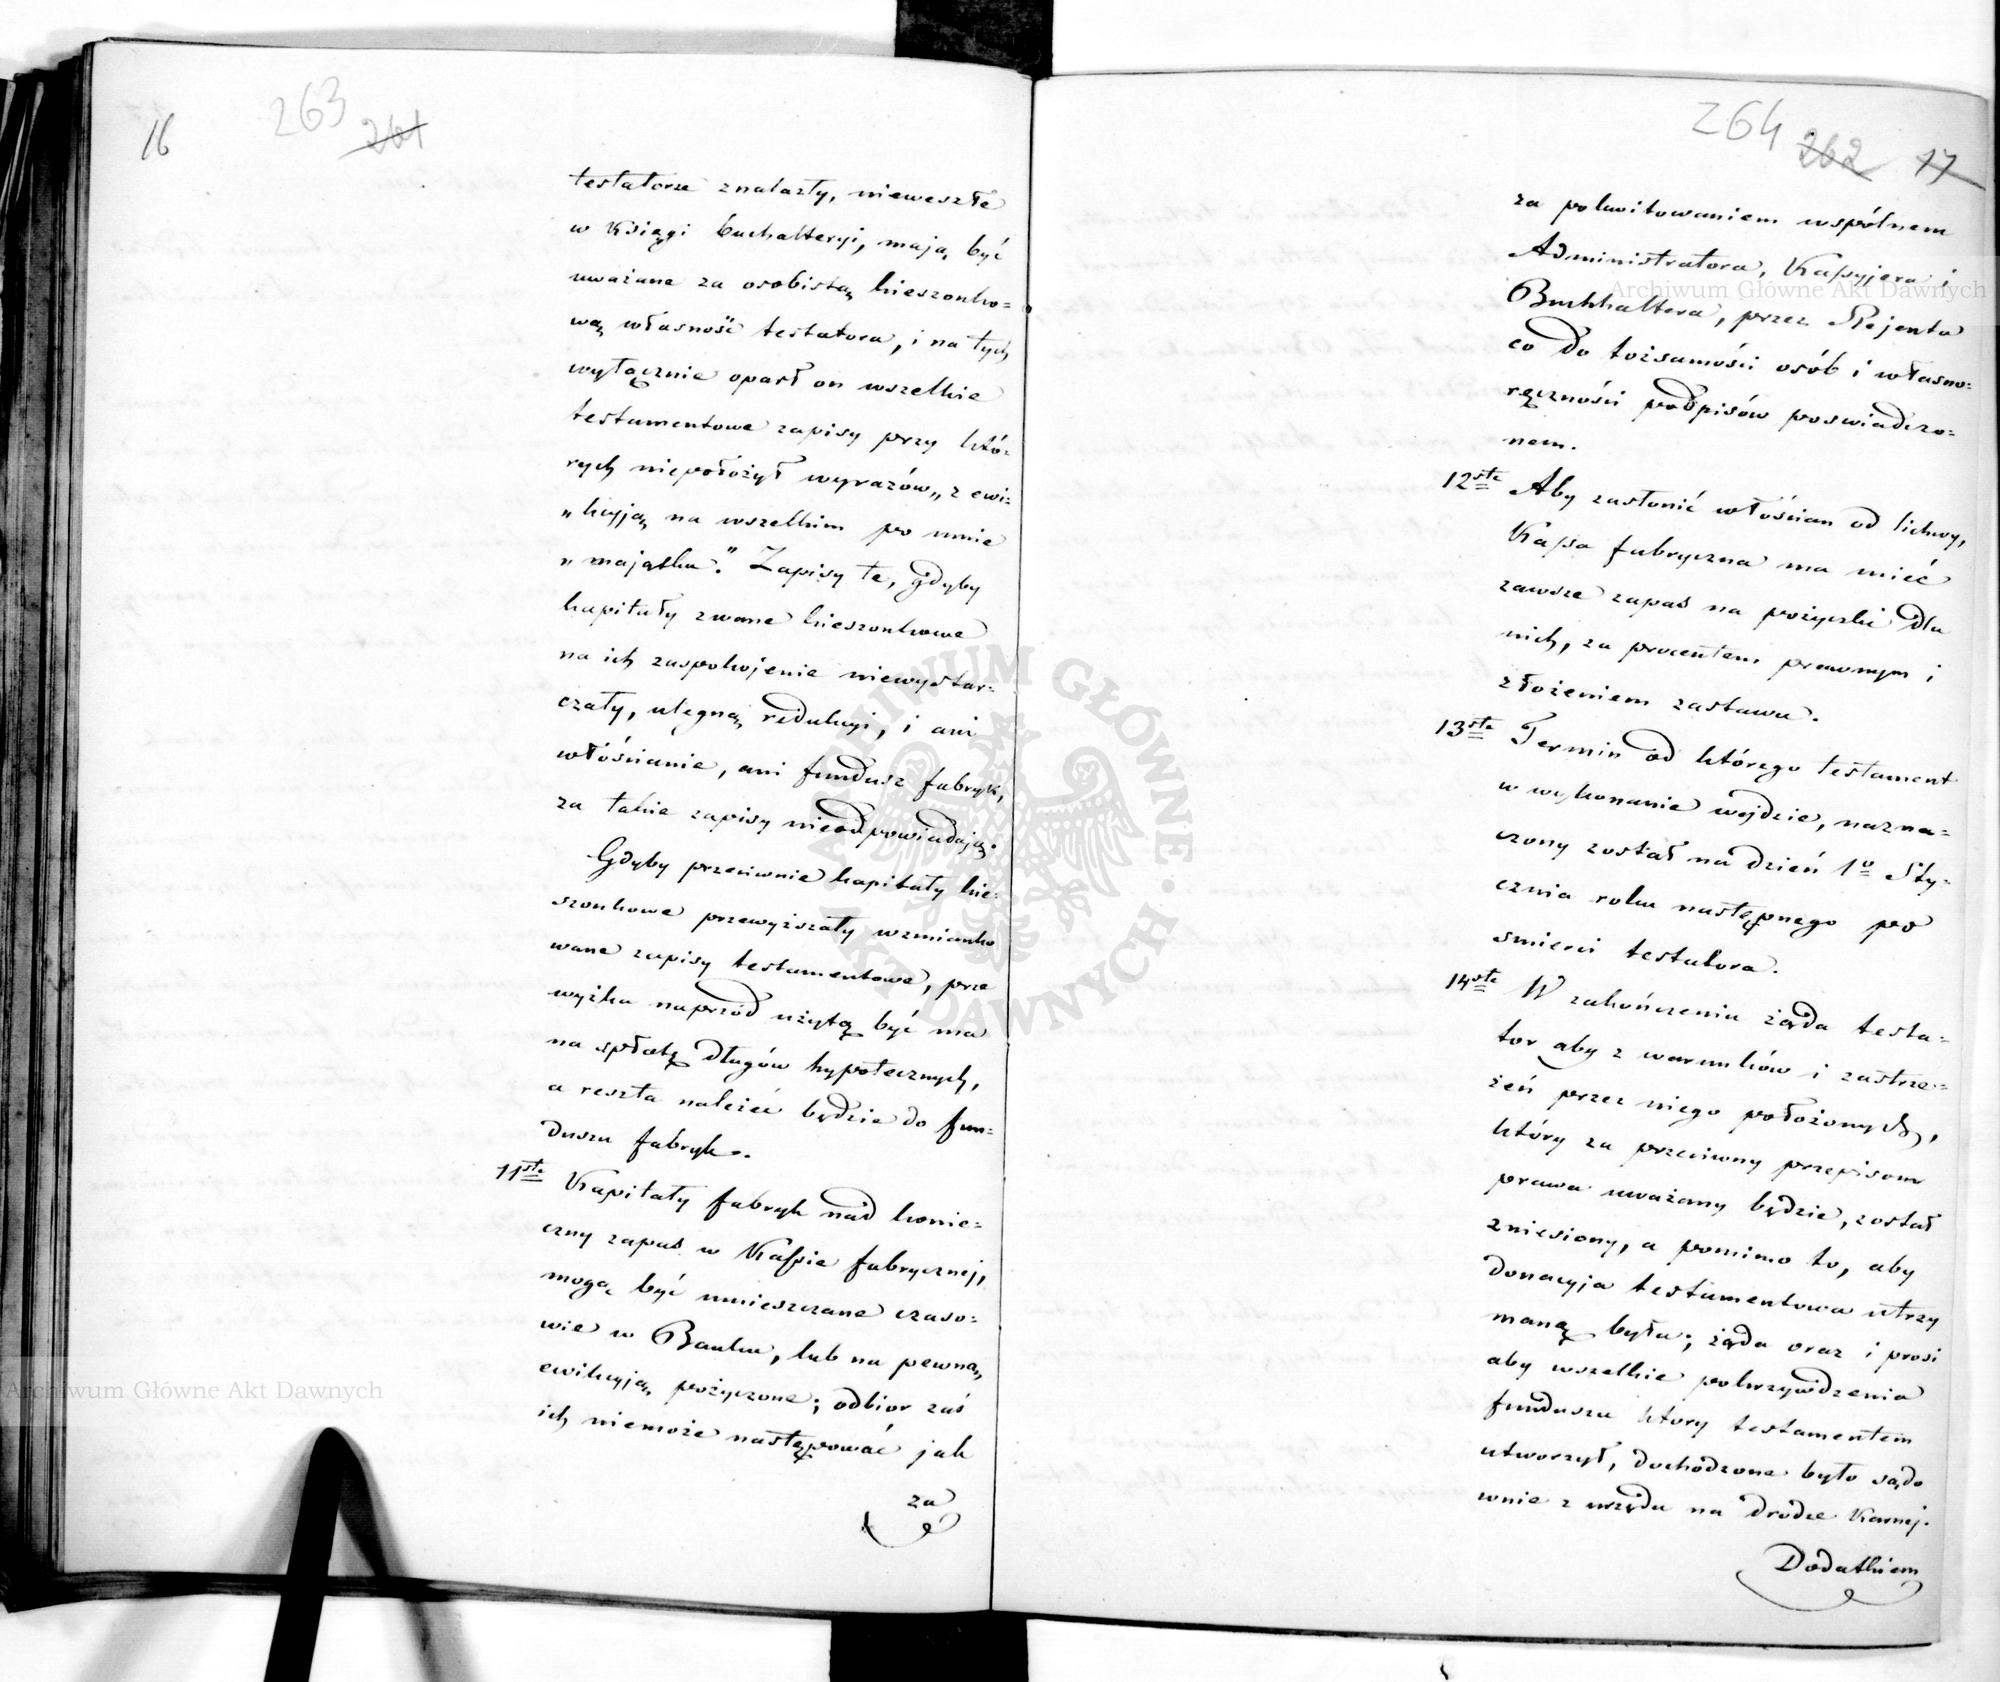 16
263
261
testatorze znalazły, nieweszłe
w Księgi buchalteryi, mają być
uważane za osobistą kieszonko=
wą własność testatora, i na tych
wyłącznie oparł on wszelkie
testamentowe zapisy przy któ=
rych niepołożył wyrazów „z ewi=
„kcyją na wszelkim po mnie
„majątku". Zapisy te, gdyby
kapitały zwane kieszonkowe
na ich zaspokojenie niewystar=
czały, ulegną redukcyi, i ani
włóścianie, ani fundusz fabryk,
za takie zapisy nieodpowiadają.
Gdyby przeciwnie kapitały kie=
szonkowe przewyższały wzmianko
wane zapisy testamentowe, prze
wyżka naprzód użytą być ma
na spłatę długów hypotecznych,
a reszta należeć będzie do fun=
duszu fabryk.
11ste Kapitały fabryk nad konie=
czny zapas w Kassie fabrycznej,
mogą być umieszczane czaso=
wie w Banku, lub na pewną
ewikcyją pożyczone; odbior zaś
ich niemoże następować jak
za
264
262
17
za pokwitowaniem wspólnem
Administratora, Kassyjera i
Buchhaltera, przez Rejenta
co do tożsamości osób i własno=
ręczności podpisów poswiadczo=
nem.
12ste Aby zasłonić włóścian od lichwy,
Kassa fabryczna ma mieć
zawsze zapas na pożyczki dla
nich, za procentem prawnym i
złożeniem zastawu.
13ste Termin od którego testament
w wykonanie wejdzie, nazna=
czony został na dzień 1o Sty=
cznia roku następnego po
smierci testatora.
14ste W zakończeniu żąda testa=
tor aby z warunków i zastrze=
żeń przez niego położonych,
który za przeciwny przepisom
prawa uważany będzie, został
zniesiony, a pomimo to, aby
donacyja testamentowa utrzy
maną była; żąda oraz i prosi
aby wszelkie pokrzywdzenia
funduszu ktory testamentem
utworzył, dochodzone było sądo
wnie z urzędu na drodze Karnej.
Dodatkiem
Archiwum Główne Akt Dawnych
Archiwum Główne Akt Dawnych
ARCHIWUM GŁÓWNE AKT DAWNYCH